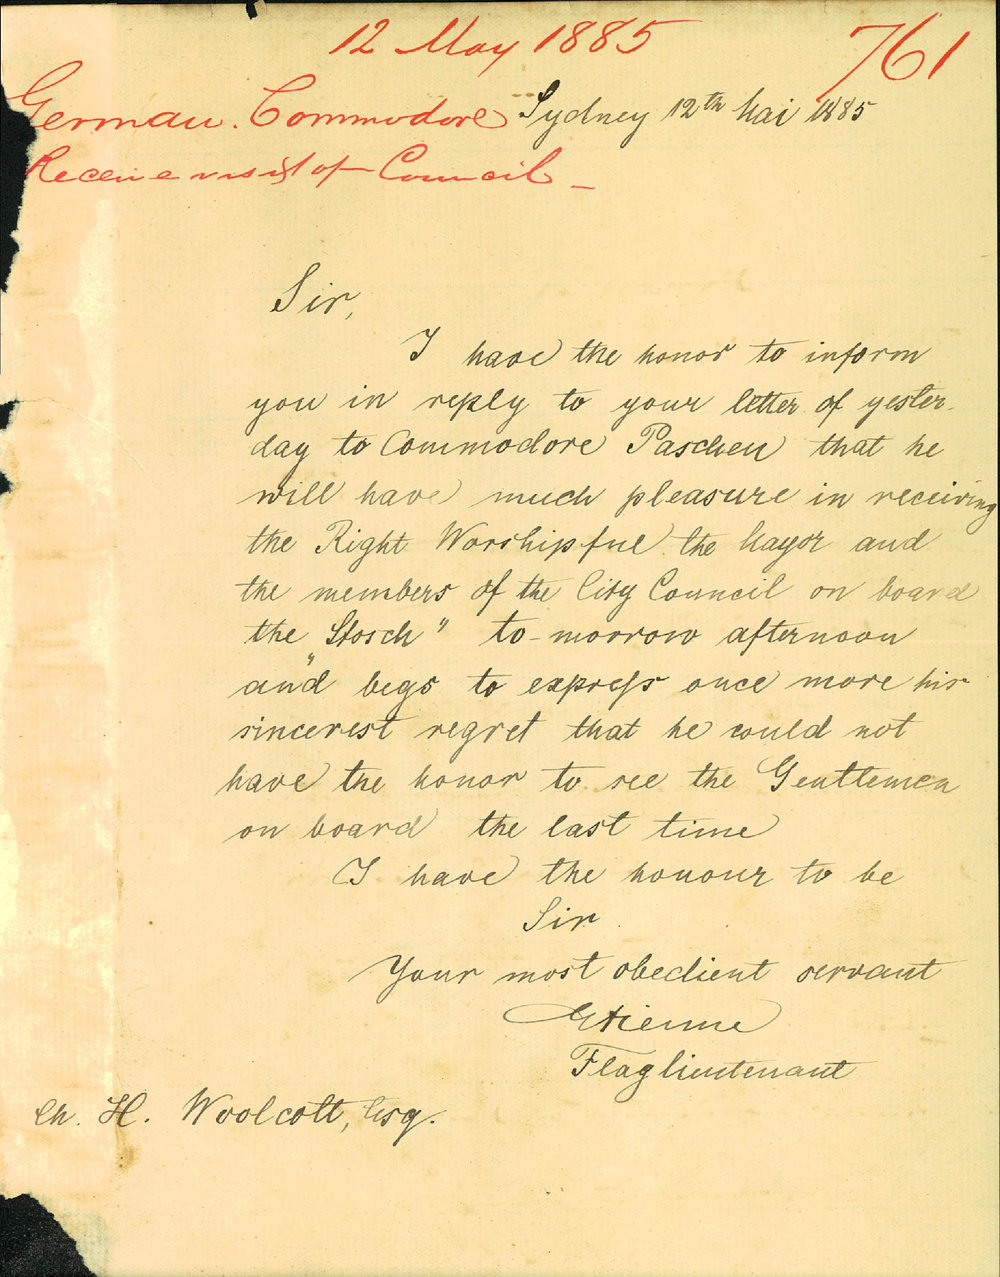 12 May 1885
761
German Commodore
Receive visit of Council
Sydney 12th Mai 1885
Sir,
I have the honor to inform
you in reply to your letter of yester-
day to Commodore Paschen that he
will have much pleasure in receiving
the Right Worshipful the Mayor and
the members of the City Council on board
the "Stosch" to-morrow afternoon
and begs to express once more his
sincerest regret that he could not
have the honor to see the Gentlemen
on board the last time
I have the honour to be
Sir
Your most obedient servant
Etienne
Flaglieutenant
Ch. H. Woolcott, Esq.